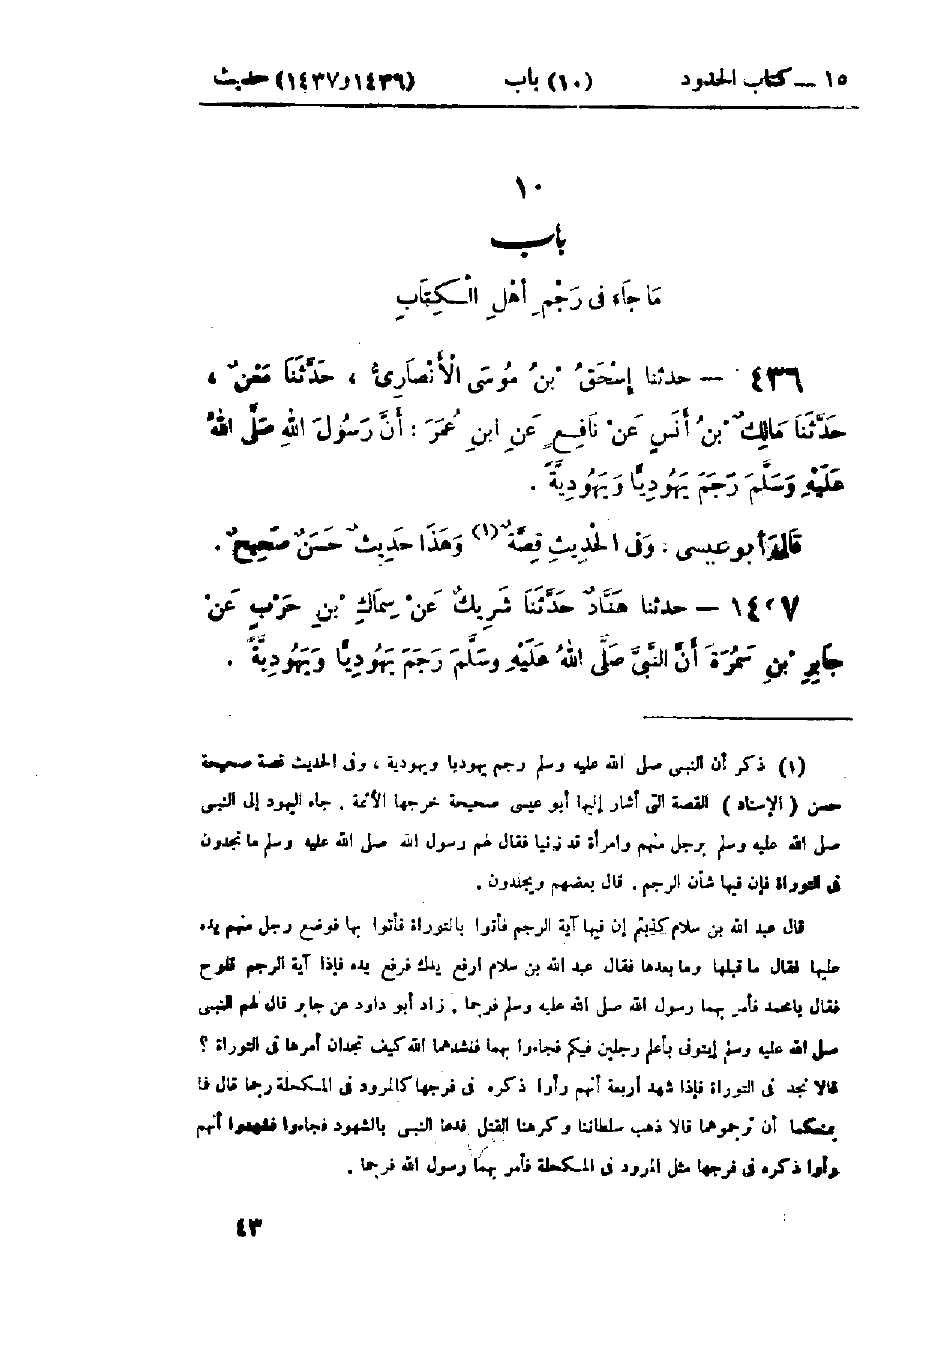 ١٥ — كتاب الحدود (١٠) باب (١٤٣٦و١٤٣٧) حديث
١٠
باب
مَا جَاءَ فِى رَجْمِ أَهْلِ الْكِتَابِ
٤٣٦ — حدثنا إِسْحَقُ بْنُ مُوسَى الْأَنْصَارِىُّ ، حَدَّثَنَا مَعْنٌ ،
حَدَّثَنَا مَالِكُ بْنُ أَنَسٍ عَنْ نَافِعٍ عَنِ ابنِ عُمَرَ : أَنَّ رَسُولَ اللهِ صَلَّى اللهُ
عَلَيْهِ وَسَلَّمَ رَجَمَ يَهُودِيًّا وَيَهُودِيَّةً .
قَالَ أَبو عيسى : وَفى الْحَدِيثِ قِصَّةٌ (١) وَهَذَا حَدِيثٌ حَسَنٌ صَحِيحٌ .
١٤٣٧ — حدثنا هَنَّادٌ حَدَّثَنَا شَرِيكٌ عَنْ سِمَاكِ بْنِ حَرْبٍ عَنْ
جَابِرِ بْنِ سَمُرَةَ أَنَّ النَّبِىَّ صَلَّى اللهُ عَلَيْهِ وسَلَّمَ رَجَمَ يَهُودِيًّا وَيَهُودِيَّةً .
(١) ذكر أن النبى صلى الله عليه وسلم رجم يهوديا ويهودية ، وفى الحديث قصة صحيحة
حسن ( الإسناد ) القصة التى أشار إليها أبو عيسى صحيحة خرجها الأئمة . جاء اليهود إلى النبى
صلى الله عليه وسلم برجل منهم وامرأة قد زنيا فقال لهم رسول الله صلى الله عليه وسلم ما تجدون
فى التوراة فإن فيها شأن الرجم . قال بعضهم ويجلدون .
قال عبد الله بن سلام كذبتم إن فيها آية الرجم فأتوا بالتوراة فأتوا بها فوضع رجل منهم يده
عليها فقال ما قبلها وما بعدها فقال عبد الله بن سلام ارفع يدك فرفع يده فإذا آية الرجم تلوح
فقال يا محمد فأمر بهما رسول الله صلى الله عليه وسلم فرجما . زاد أبو داود عن جابر قال لهم النبى
صلى الله عليه وسلم إيتونى بأعلم رجلين فيكم فجاءوا بهما فنشدهما الله كيف تجدان أمرها فى التوراة ؟
قالا نجد فى التوراة فإذا شهد أربعة أنهم رأوا ذكره فى فرجها كالمرود فى المكحلة رجما قال فما
يمنعكما أن ترجموهما قالا ذهب سلطاننا وكرهنا القتل فدعا النبى بالشهود فجاءوا فشهدوا أنهم
رأوا ذكره فى فرجها مثل المرود فى المكحلة فأمر بهما رسول الله فرجما .
٤٣